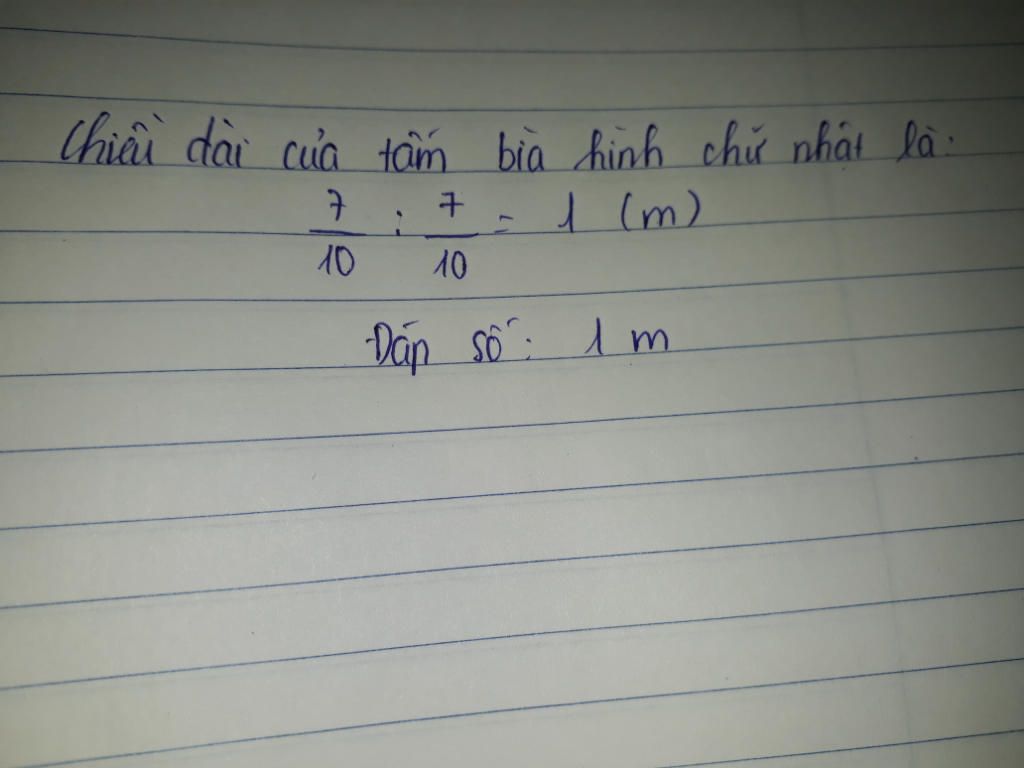 Chiều dài của tấm bìa hình chữ nhật là:
7/10 : 7/10 = 1 (m)
Đáp số: 1 m